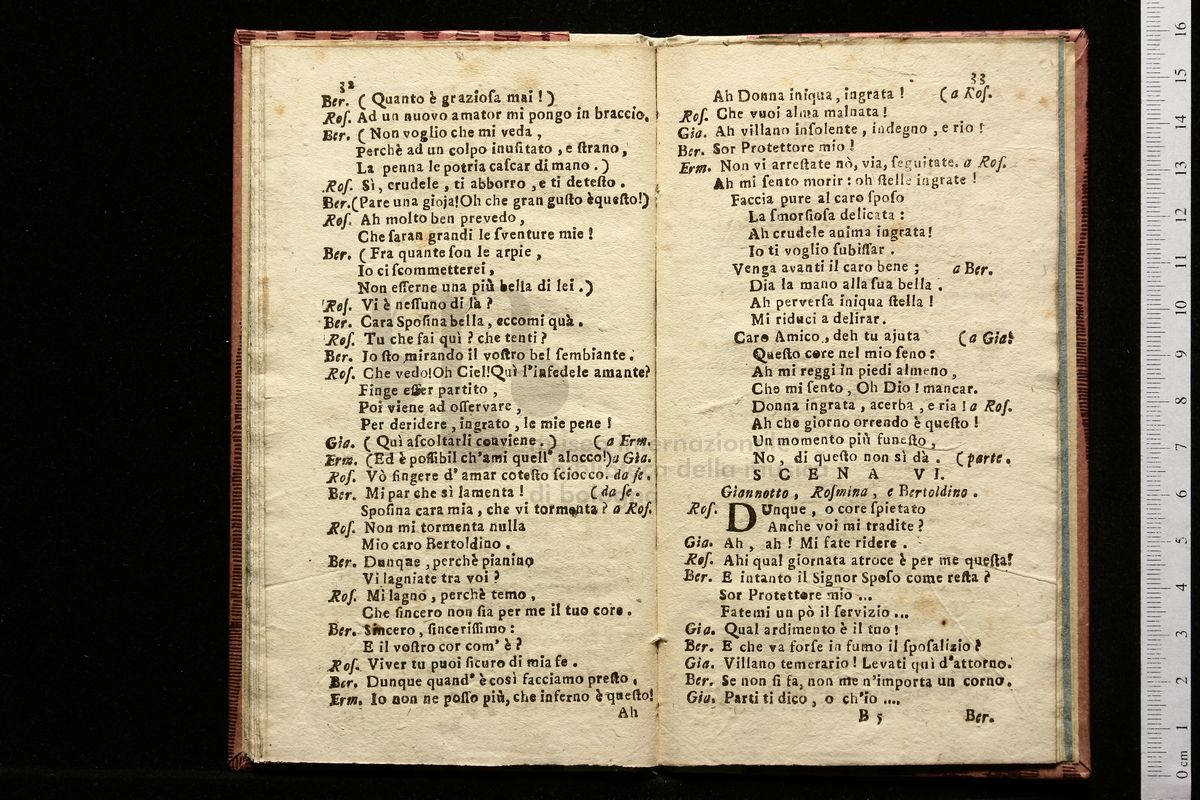 32
Ber. ( Quanto è grazioſa mai ! )
Roſ. Ad un nuovo amator mi pongo in braccio.
Ber. ( Non voglio che mi veda ,
Perchè ad un colpo inuſitato , e ſtrano ,
La penna le potria caſcar di mano . )
Roſ. Sì , crudele , ti abborro , e ti deteſto .
Ber. (Pare una gioja!Oh che gran guſto èqueſto!)
Roſ. Ah molto ben prevedo ,
Che ſaran grandi le ſventure mie !
Ber. ( Fra quante ſon le arpie ,
Io ci ſcommetterei ,
Non eſſerne una più bella di lei . )
Roſ. Vi è neſſuno di là ?
Ber. Cara Spoſina bella , eccomi quà .
Roſ. Tu che fai quì ? che tenti ?
Ber. Io ſto mirando il voſtro bel ſembiante .
Roſ. Che vedo!Oh Ciel!Quì l'infedele amante?
Finge eſſer partito ,
Poi viene ad oſſervare ,
Per deridere , ingrato , le mie pene !
Gia. ( Quì aſcoltarli conviene . ) ( a Erm.
Erm. (Ed è poſſibil ch'ami quell' alocco!) a Gia.
Roſ. Vò fingere d' amar coteſto ſciocco. da ſe.
Ber. Mi par che sì lamenta ! ( da ſe .
Spoſina cara mia , che vi tormenta ? a Roſ.
Roſ. Non mi tormenta nulla
Mio caro Bertoldino .
Ber. Dunque , perchè pianino
Vi lagniate tra voi ?
Roſ. Mi lagno , perchè temo ,
Che ſincero non ſia per me il tuo core .
Ber. Sincero , ſinceriſſimo :
E il voſtro cor com' è ?
Roſ. Viver tu puoi ſicuro di mia fe .
Ber. Dunque quand' è così facciamo preſto .
Erm. Io non ne poſſo più, che inferno è queſto!
Ah
33
Ah Donna iniqua , ingrata ! ( a Roſ.
Roſ. Che vuoi alma malnata !
Gia. Ah villano inſolente , indegno , e rio !
Ber. Sor Protettore mio !
Erm. Non vi arreſtate nò, via, ſeguitate. a Roſ.
Ah mi ſento morir : oh ſtelle ingrate !
Faccia pure al caro ſpoſo
La ſmorfioſa delicata :
Ah crudele anima ingrata!
Io ti voglio ſubiſſar .
Venga avanti il caro bene ; a Ber.
Dia la mano alla ſua bella .
Ah perverſa iniqua ſtella !
Mi riduci a delirar .
Caro Amico , deh tu ajuta ( a Gia.
Queſto core nel mio ſeno :
Ah mi reggi in piedi almeno ,
Che mi ſento , Oh Dio ! mancar.
Donna ingrata , acerba , e ria ! a Roſ.
Ah che giorno orrendo è queſto !
Un momento più funeſto ,
No , di queſto non sì dà . ( parte .
SCENA VI.
Giannotto , Roſmina , e Bertoldino .
Roſ. DUnque , o core ſpietato
Anche voi mi tradite ?
Gia. Ah , ah ! Mi fate ridere .
Roſ. Ahi qual giornata atroce è per me queſta!
Ber. E intanto il Signor Spoſo come reſta ?
Sor Protettore mio ...
Fatemi un pò il ſervizio ...
Gia. Qual ardimento è il tuo !
Ber. E che va forſe in fumo il ſpoſalizio ?
Gia. Villano temerario ! Levati quì d'attorno.
Ber. Se non ſi fa, non me n'importa un corno.
Gia. Parti ti dico , o ch'io ....
B 5 Ber.
0 cm 1 2 3 4 5 6 7 8 9 10 11 12 13 14 15 16